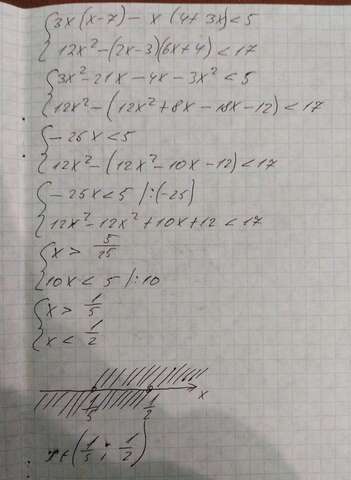 {3x(x-7) - x(4+3x)<5
{12x²-(2x-3)(6x+4)<17
{3x²-21x-4x-3x²<5
{12x²-(12x²+8x-18x-12)<17
{-25x<5
{12x²-(12x²-10x-12)<17
{-25x<5 /:(-25)
{12x²-12x²+10x+12<17
{x> 5/25
{10x<5 /:10
{x> 1/5
{x< 1/2
1/5 1/2 x
x∈(1/5; 1/2)